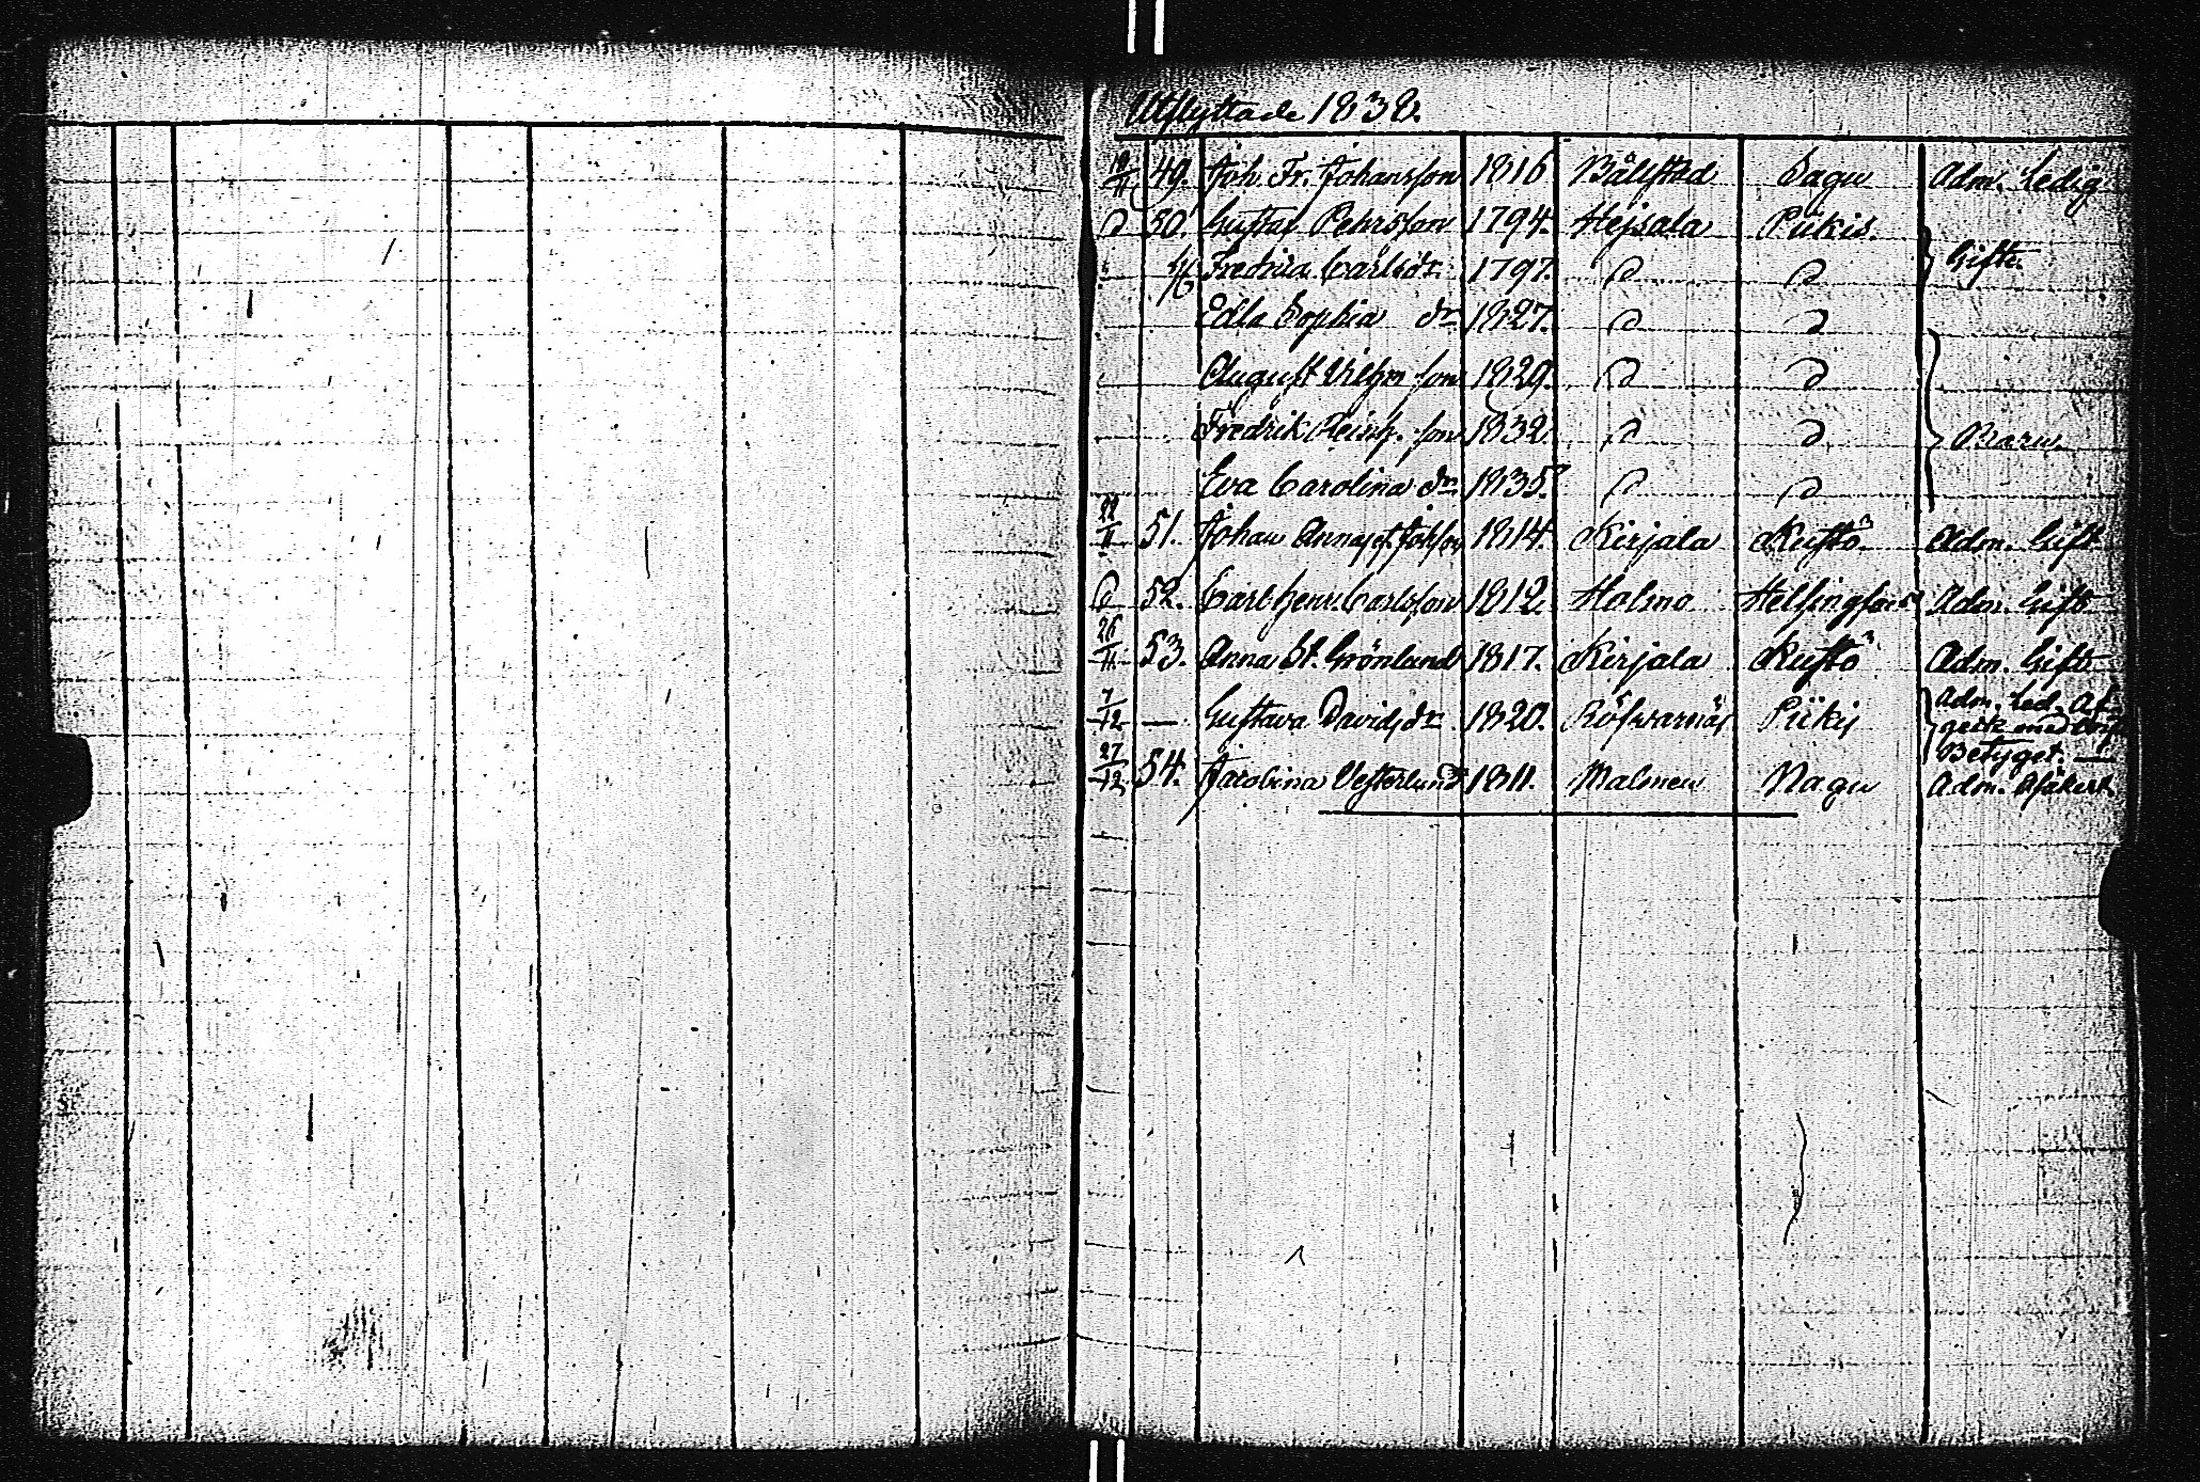 Utflyttade 1838.
19/11 49. Joh. Fr. Johansson 1816 Bälstad Sagu Adm. Ledig
D 50. Gustaf Pehrsson 1794. Hejsala Piikis. Gifte.
Fredrica Carlsdr 1797. D D
Edla Sophia dr 1827. D D
August Vilhm son 1829. D D
Fredrik Reinh. son 1832. D D Barn
Eva Carolina dr 1835. D D
22/11 51. Johan Johsson 1814. Kirjala Kustö Adm. Gift
D 52. Carl Henr. Carlsson 1812. Malmo Helsingfors Adm. Gift
26/11 53. Anna St. Grönlund 1817. Kirjala Kustö Adm. Gift
7/12 — Gustava Davidsdr 1820. Röfvarnäs Piikis Adm. Led. Af-
geck med
Betyget. —
27/12 54. Jacobina Vesterlund 1811. Malmen Nagu Adm.